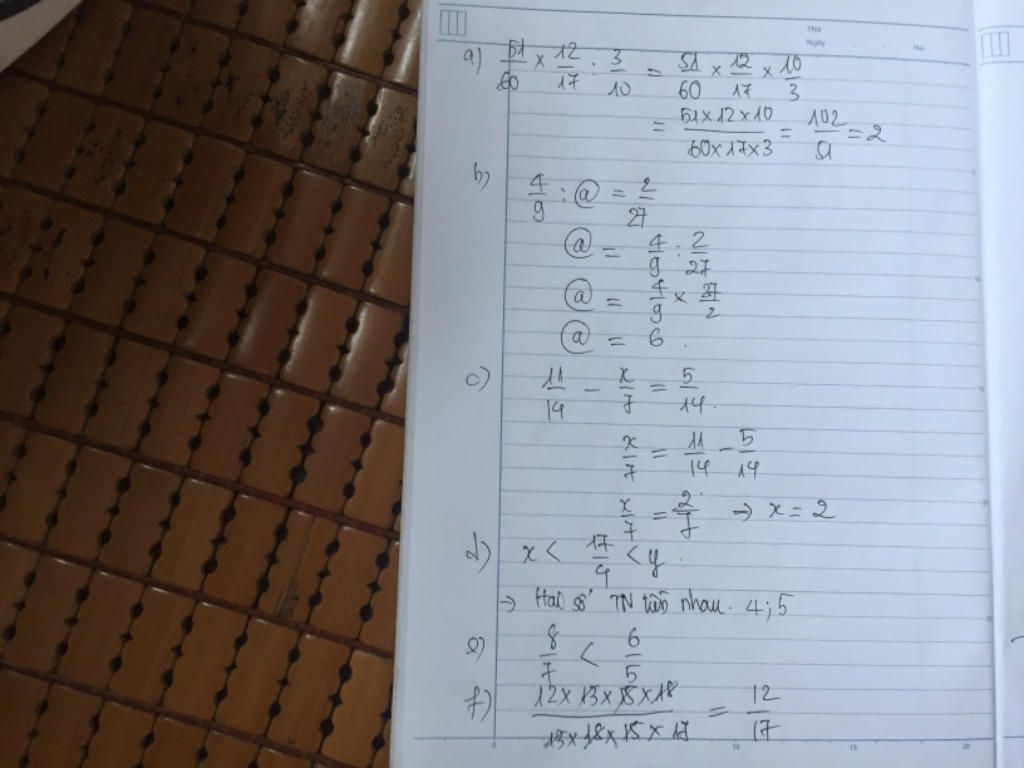 Thứ
Ngày No.
a) 51/60 × 12/17 : 3/10 = 51/60 × 12/17 × 10/3
= 51×12×10 / 60×17×3 = 102/51 = 2
b) 4/9 : @ = 2/27
@ = 4/9 : 2/27
@ = 4/9 × 27/2
@ = 6.
c) 11/14 - x/7 = 5/14.
x/7 = 11/14 - 5/14
x/7 = 2/7 → x = 2
d) x < 17/4 < y.
→ Hai số TN liên nhau. 4; 5
e) 8/7 < 6/5
f) 12 × 13 × 15 × 18 / 13 × 18 × 15 × 17 = 12/17
0 10 15 20